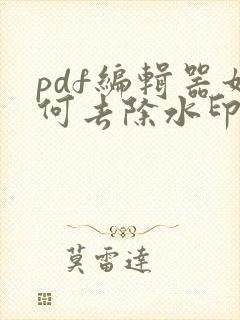 pdf编辑器如
何去除水印
莫雷達